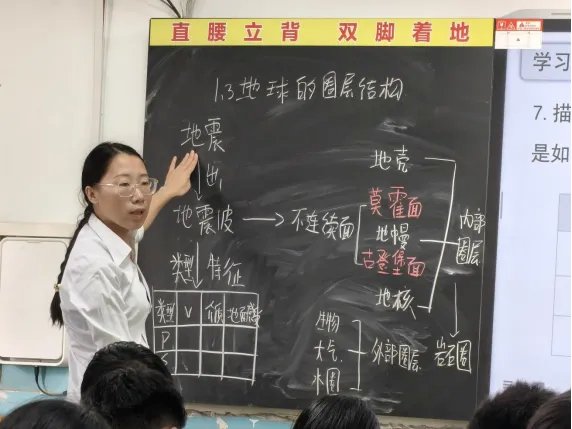 直腰立背 双脚着地
1.3地球的圈层结构
地震
地震波 → 不连续面
类型 特征
类型 V 介质 地面感受
P
S
地壳
莫霍面
地幔
古登堡面
地核
内部圈层
岩石圈
生物
大气
水圈
外部圈层
学习
7. 描
是如